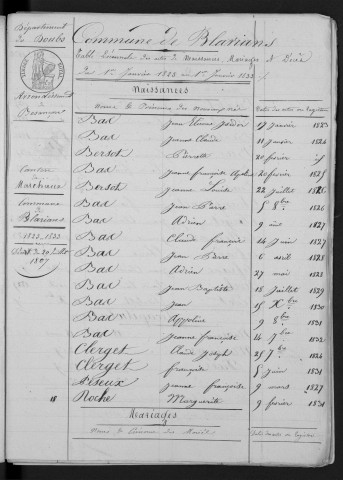 Département
du Doubs
Arrondissement
de Besançon
Canton
de
Marchaux
Commune
de
Blarians
1823-1833
Décret du 20 Juillet
1807
18
Commune de Blarians
Table Décennale des actes de Naissances, Mariages et Décès
du 1er Janvier 1823 au 1er Janvier 1833
Naissances
Noms & Prénoms des Dates des actes au Registre
Bax Jean 17 janvier 1823
Bax Jeanne Claude 11 janvier 1824
Bersot Pierrette 20 février
Bax Jeanne françoise 20 février 1825
Bersot Jeanne Louise 22 juillet 1826
Bax Jean Pierre 5 8bre 1826
Bax Adrien 9 1827
Bax Claude françois 14 Juin 1827
Bax Jean Pierre 6 avril 1828
Bax Adrien 27 mai 1828
Bax Jean Baptiste 18 juillet 1829
Bax Jean 15 Xbre 1830
Bax Appoline 9 8bre 1831
Bax Jeanne françoise 14 7bre 1832
Clerget Claude Joseph 25 7bre 1824
Clerget françoise 5 juin 1831
Jeanne françoise 9 mars 1827
Roche Marguerite 9 février 1831
Mariages
Noms & Prénoms des Mariés Dates des actes au registre